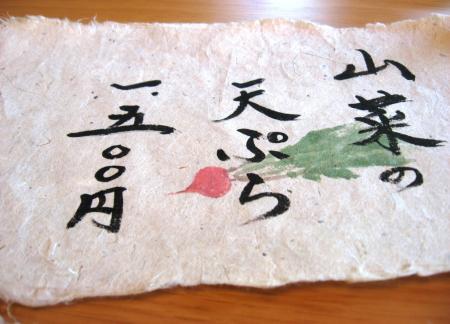 山菜の
天ぷら
一、五〇〇円